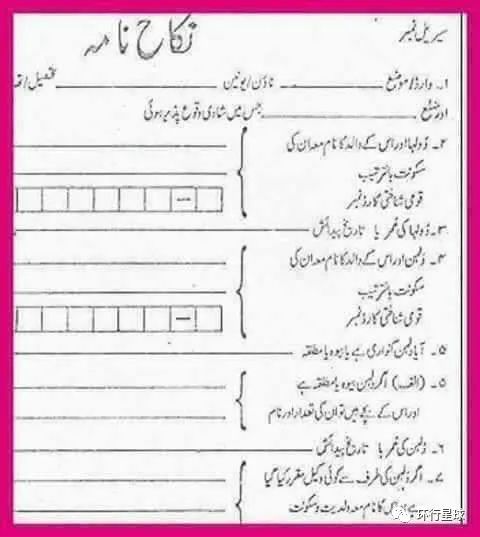 سیریل نمبر
نکاح نامہ
۱۔ وارڈ/موضع ٹاؤن/یونین تحصیل/تھ
اور ضلع جس میں شادی وقوع پذیر ہوئی
۲۔ دُولہا اور اس کے والد کا نام معہ ان کی
سکونت بالترتیب
قومی شناختی کارڈ نمبر
۳۔ دُولہا کی عمر یا تاریخ پیدائش
۴۔ دُلہن اور اس کے والد کا نام معہ ان کی
سکونت بالترتیب
قومی شناختی کارڈ نمبر
۵۔ آیا دلہن کنواری ہے یا بیوہ یا مطلقہ
۵۔ (الف) اگر دلہن بیوہ یا مطلقہ ہے
اور اس کے بچے ہیں تو ان کی تعداد اور نام
۶۔ دُلہن کی عمر یا تاریخ پیدائش
۷۔ اگر دُلہن کی طرف سے کوئی وکیل مقرر کیا گیا
ہے تو اس کا نام معہ ولدیت و سکونت
环行星球